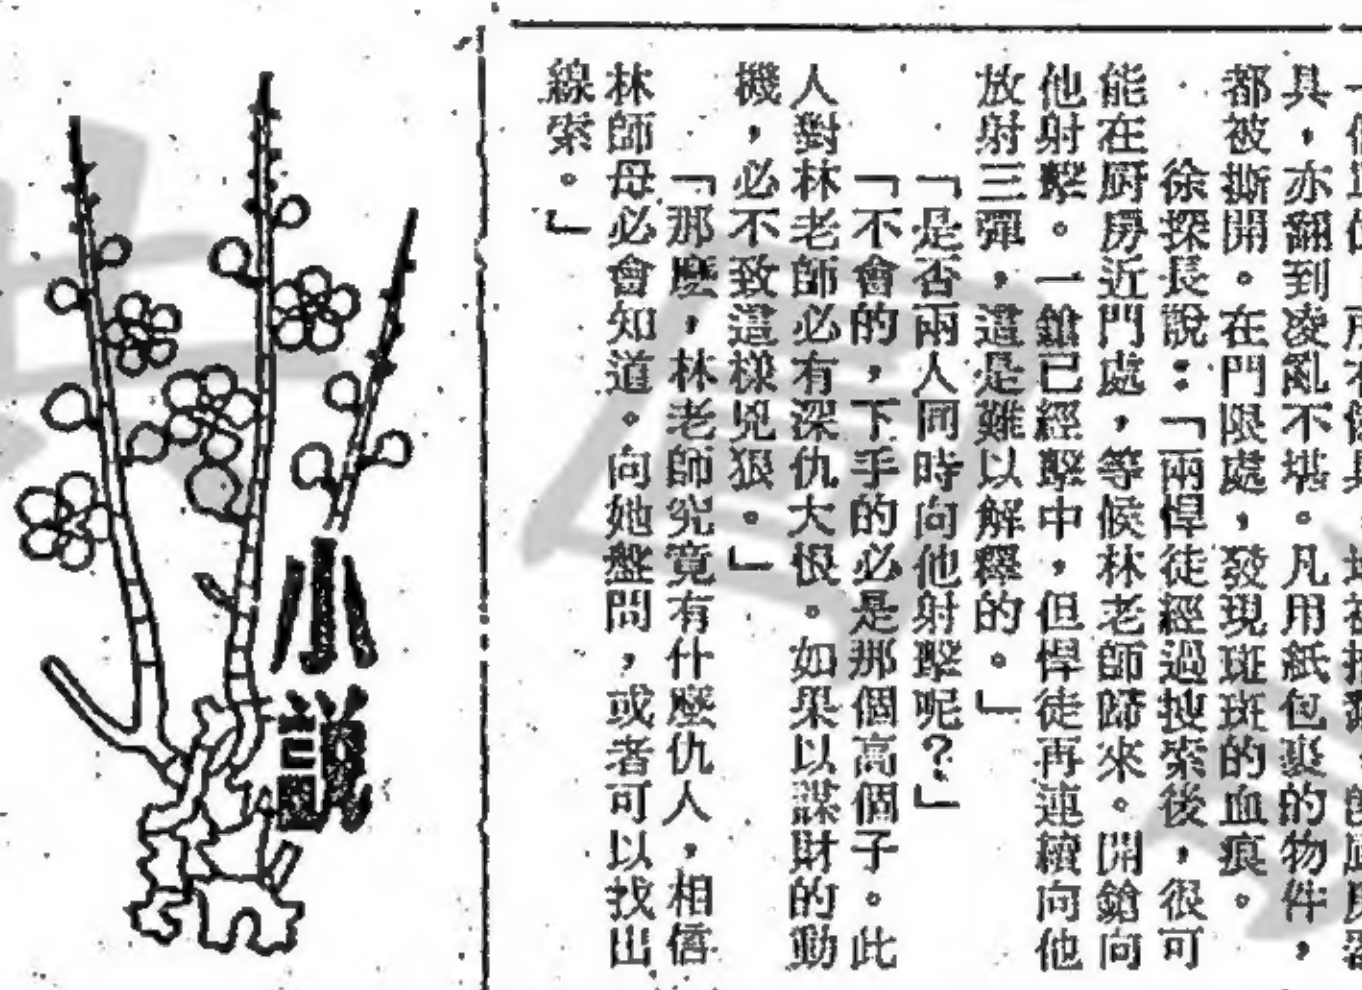 具，亦翻到凌亂不堪。凡用紙包裹的物件，
都被撕開。在門限處，發現斑斑的血痕。
徐探長說：「兩悍徒經過搜索後，很可
能在厨房近門處，等候林老師歸來。開鎗向
他射擊。一鎗已經擊中，但悍徒再連續向他
放射三彈，這是難以解釋的。」
「是否兩人同時向他射擊呢？」
「不會的，下手的必是那個高個子。此
人對林老師必有深仇大恨。如果以謀財的動
機，必不致這樣兇狠。」
「那麼，林老師究竟有什麼仇人，相信
林師母必會知道。向她盤問，或者可以找出
線索。」
小說